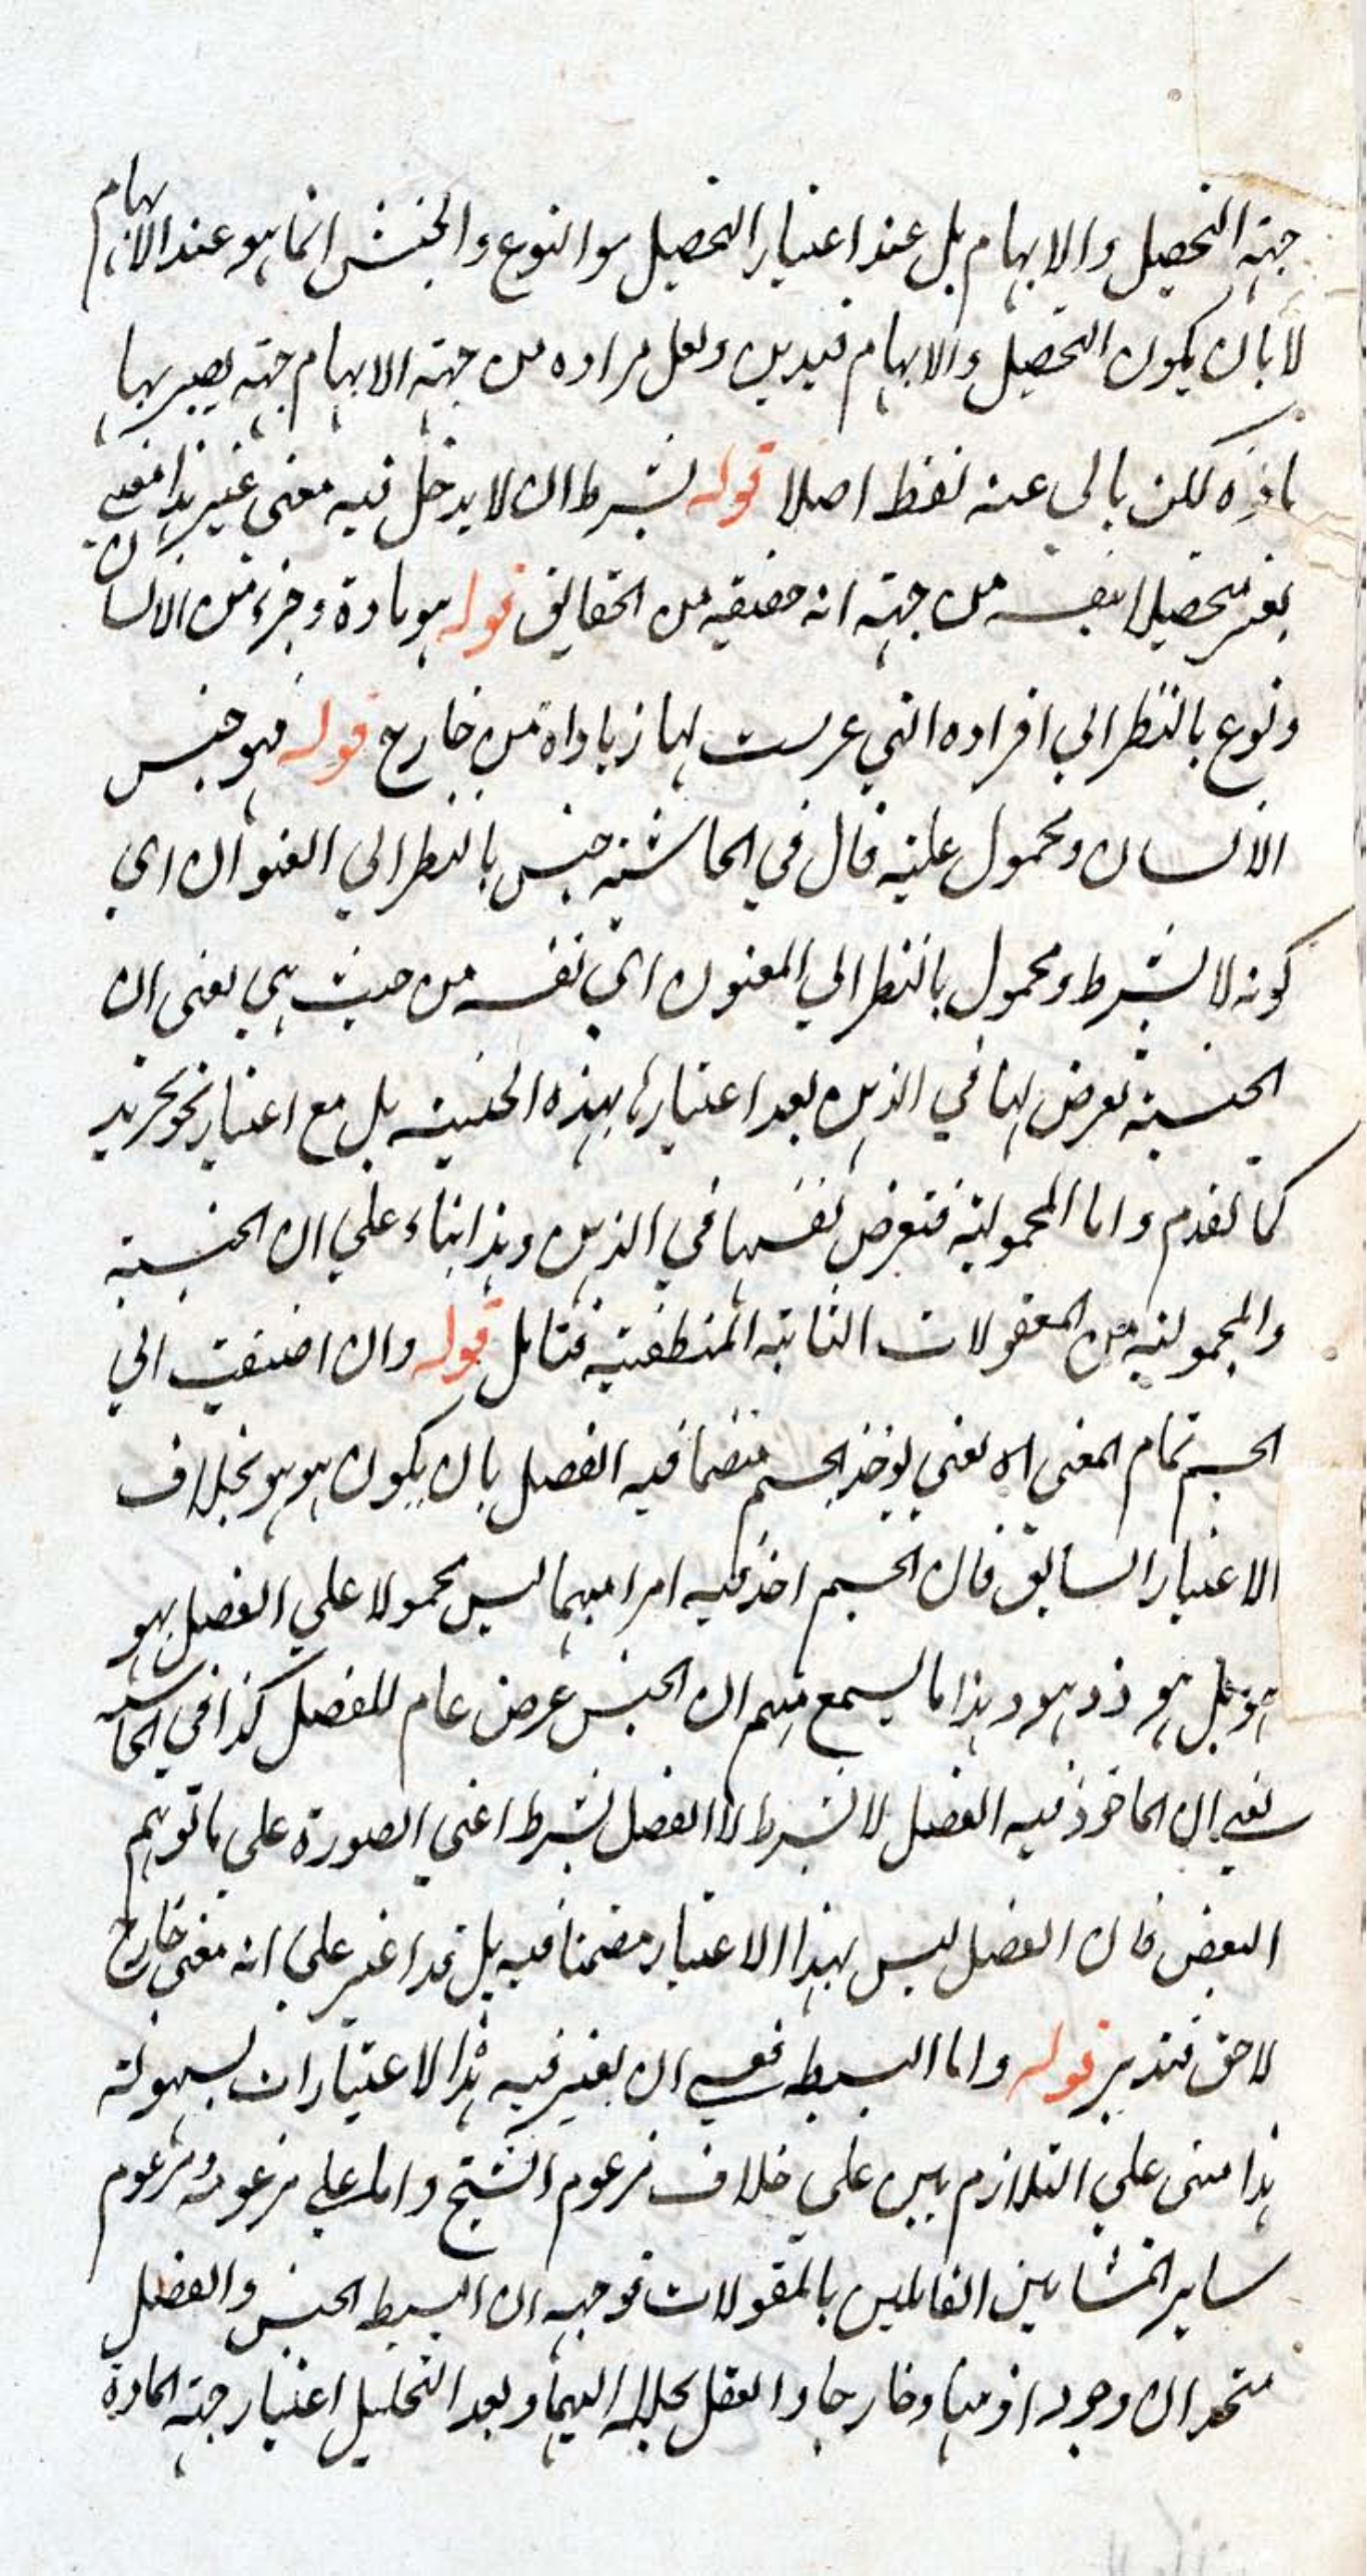 جهة التحصيل والابهام بل عند اعتبار التحصيل هو النوع والجنس انما هو عند الابهام
لا بان يكون التحصيل والابهام قيدين ولعل مراده من جهة الابهام جهة يصير بها
لكن يابى عنه لفظ اصلا قوله بشرط ان لا يدخل فيه معنى غير هذا
متحصلا بنفسه من جهة انه حقيقة من الحقايق قوله هو مادة وجزء من الانسان
ونوع بالنظر الي افراده التي عرضت لها زيادات من خارج قوله فهو جنس
الانسان ومحمول عليه قال في الحاشية جنس بالنظر الي العنوان اي
كونه لا بشرط ومحمول بالنظر الي المعنون اي نفسه من حيث هي يعني ان
الجنسية تعرض لها في الذهن بعد اعتبارها بهذه الحيثية بل مع اعتبار نحو تجريد
كما تقدم واما المحمولية فتعرض لنفسها في الذهن وهذا بناء علي ان الجنسية
والمحمولية من المعقولات الثانية المنطقية فتامل قوله وان اضيفت الي
الجسم تمام المعني اه يعني يوخذ الجسم متضمنا فيه الفصل بان يكون هو هو بخلاف
الاعتبار السابق فان الجسم اخذ فيه امرا مبهما ليس محمولا علي الفصل بهو
هو بل هو ذو هو وهذا ما يسمع منهم ان الجنس عرض عام للفصل كذا في الحاشية
يعني ان الماخوذ فيه الفصل لا بشرط لا الفصل بشرط اعني الصورة على ما توهم
البعض فان الفصل ليس بهذا الاعتبار مضمنا فيه بل قد اعتبر علي انه معني خارج
لاحق فتدبر قوله واما البسيط فعسى ان يعتبر فيه هذا الاعتبارات لسهولة
هذا مبني علي التلازم بين علي خلاف مزعوم الشيخ واما علي مزعومه ومزعوم
ساير المشايين القايلين بالمقولات فوجهه ان البسيط الجنس والفصل
متحدان وجودا ذهنيا وخارجا والعقل يحلله اليهما وبعد التحليل اعتبار جهة المادة